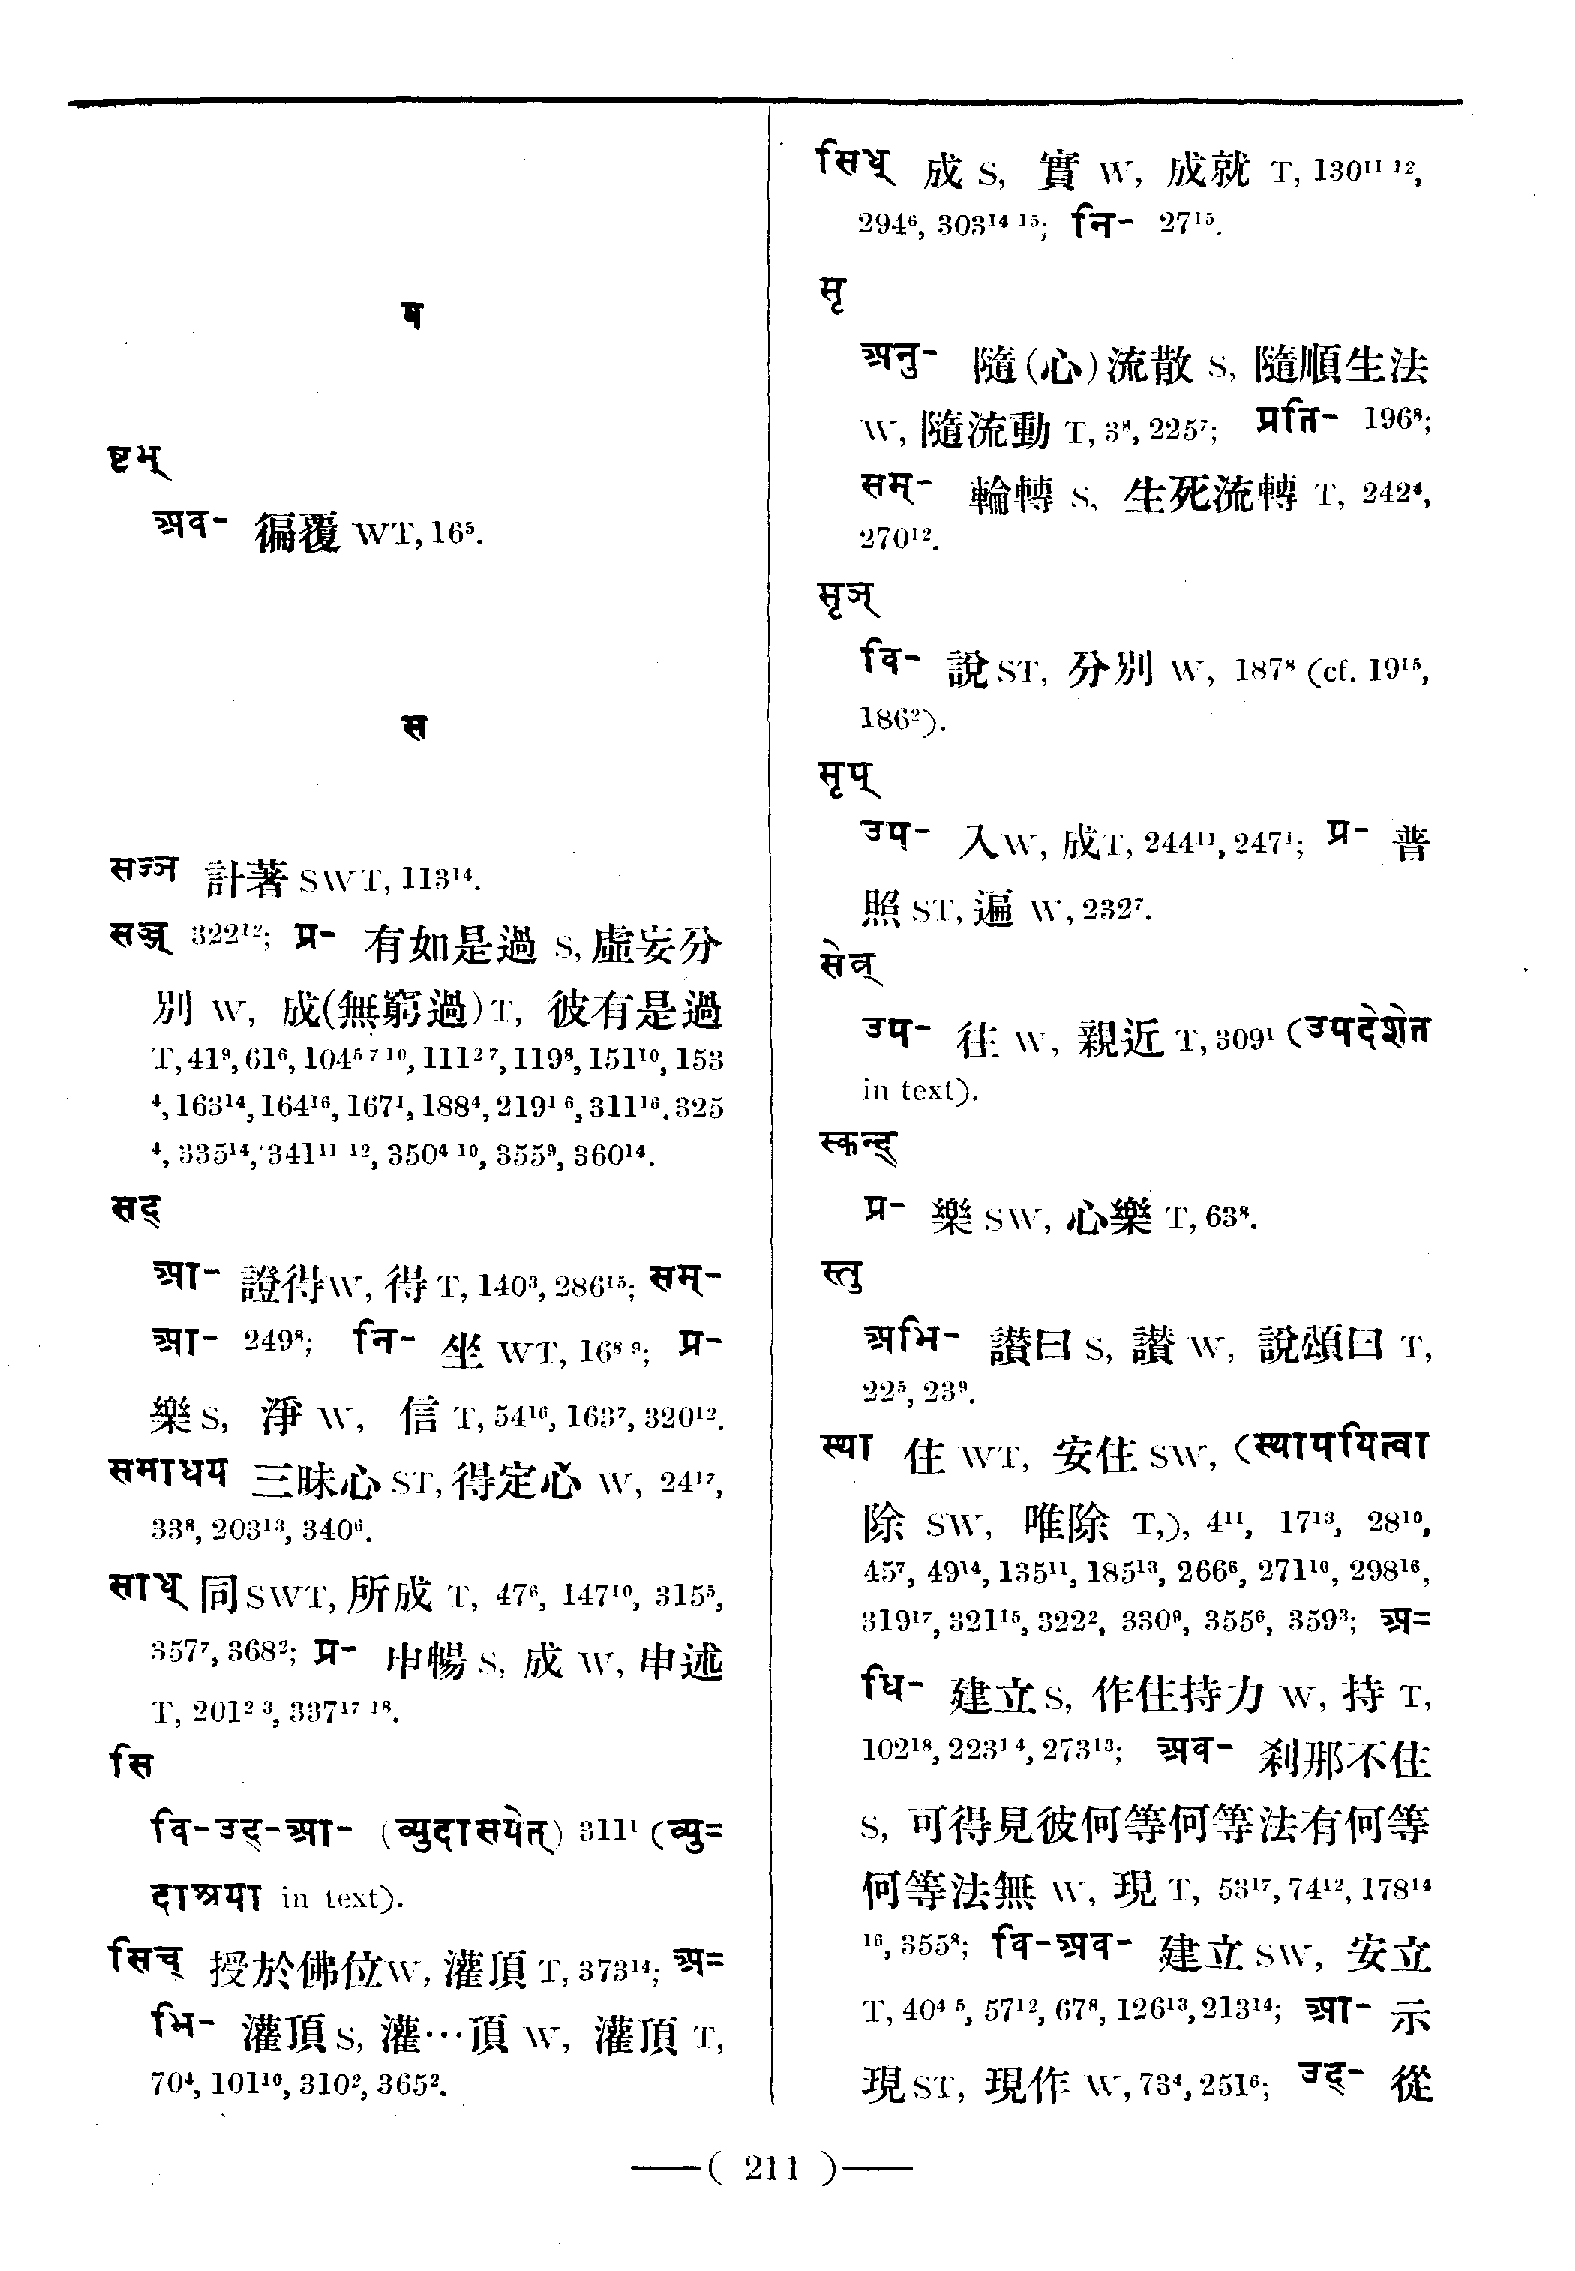 ष
ष्टभ्
अव- 徧覆 WT, 16⁵.
स
सञ्ज 計著 SWT, 113¹⁴.
सञ्ज् 322¹²; प्र- 有如是過 S, 虛妄分
別 W, 成(無窮過)T, 彼有是過
T, 41⁹, 61⁶, 104⁵ ⁷ ¹⁰, 111² ⁷, 119⁸, 151¹⁰, 153
⁴, 163¹⁴, 164¹⁶, 167¹, 188⁴, 219¹ ⁶, 311¹⁶, 325
⁴, 335¹⁴, 341¹¹ ¹², 350⁴ ¹⁰, 355⁹, 360¹⁴.
सद्
आ- 證得W, 得 T, 140³, 286¹⁵; सम्-
आ- 249⁸; नि- 坐 WT, 16⁸ ⁹; प्र-
樂 S, 淨 W, 信 T, 54¹⁶, 163⁷, 320¹².
समाधय 三昧心 ST, 得定心 W, 24¹⁷,
33⁸, 203¹³, 340⁶.
साध् 同SWT, 所成 T, 47⁶, 147¹⁰, 315⁵,
357⁷, 368²; प्र- 申暢 S, 成 W, 申述
T, 201² ³, 337¹⁷ ¹⁸.
सि
वि-उद्-आ- (व्युदासयेत्) 311¹ (व्यु=
दाश्रया in text).
सिच् 授於佛位W, 灌頂 T, 373¹⁴; अ=
भि- 灌頂 S, 灌…頂 W, 灌頂 T,
70⁴, 101¹⁰, 310², 365².
सिध् 成 S, 實 W, 成就 T, 130¹¹ ¹²,
294⁶, 303¹⁴ ¹⁵; नि- 27¹⁵.
सृ
अनु- 隨(心)流散 S, 隨順生法
W, 隨流動 T, 3⁸, 225⁷; प्रति- 196⁸;
सम्- 輪轉 S, 生死流轉 T, 242⁴,
270¹².
सृज्
वि- 說ST, 分別 W, 187⁸ (cf. 19¹⁵,
186²).
सृप्
उप- 入W, 成T, 244¹¹, 247¹; प्र- 普
照 ST, 遍 W, 232⁷.
सेव्
उप- 往 W, 親近 T, 309¹ (उपदेशेत
in text).
स्कन्द्
प्र- 樂 SW, 心樂 T, 63⁸.
स्तु
अभि- 讃曰 S, 讃 W, 說頌曰 T,
22⁵, 23⁹.
स्था 住 WT, 安住 SW, (स्थापयित्वा
除 SW, 唯除 T,), 4¹¹, 17¹³, 28¹⁰,
45⁷, 49¹⁴, 135¹¹, 185¹³, 266⁶, 271¹⁰, 298¹⁶,
319¹⁷, 321¹⁵, 322², 330⁹, 355⁶, 359³; अ=
धि- 建立 S, 作住持力 W, 持 T,
102¹⁸, 223¹ ⁴, 273¹³; अव- 刹那不住
S, 可得見彼何等何等法有何等
何等法無 W, 現 T, 53¹⁷, 74¹², 178¹⁴
¹⁶, 355⁸; वि-अव- 建立 SW, 安立
T, 40⁴ ⁵, 57¹², 67⁸, 126¹³, 213¹⁴; आ- 示
現 ST, 現作 W, 73⁴, 251⁶; उद्- 從
——( 211 )——